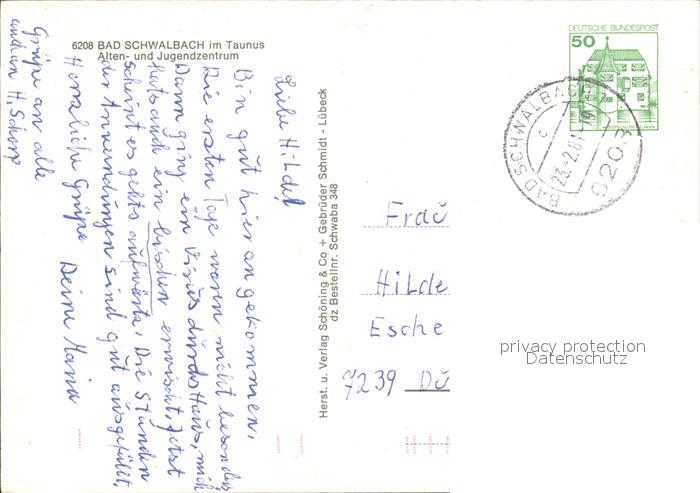 6208 BAD SCHWALBACH im Taunus
Alten- und Jugendzentrum
Liebe Hilde!
Bin gut hier angekommen,
Die ersten Tage waren nicht besonders
Dann ging ein Virus durchs Haus, mich
hats auch ein bischen erwischt, jetzt
scheint es gehts aufwärts. Die Stunden
der Anwendungen sind gut ausgefüllt,
Herzliche Grüße Deine Maria
Grüße an alle
auch an H. Schorp
Herst. u. Verlag Schöning & Co + Gebrüder Schmidt - Lübeck
dz Bestellnr. Schwaba 348
DEUTSCHE BUNDESPOST
50
BAD SCHWALBACH 1
c
23.2.81-19
6208
Frau
Hilde
Esche
7239 Dü
privacy protection
Datenschutz